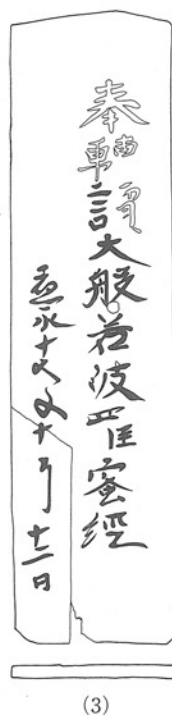 奉轉讀大般若波羅蜜經
應永十六年十月十二日
(3)